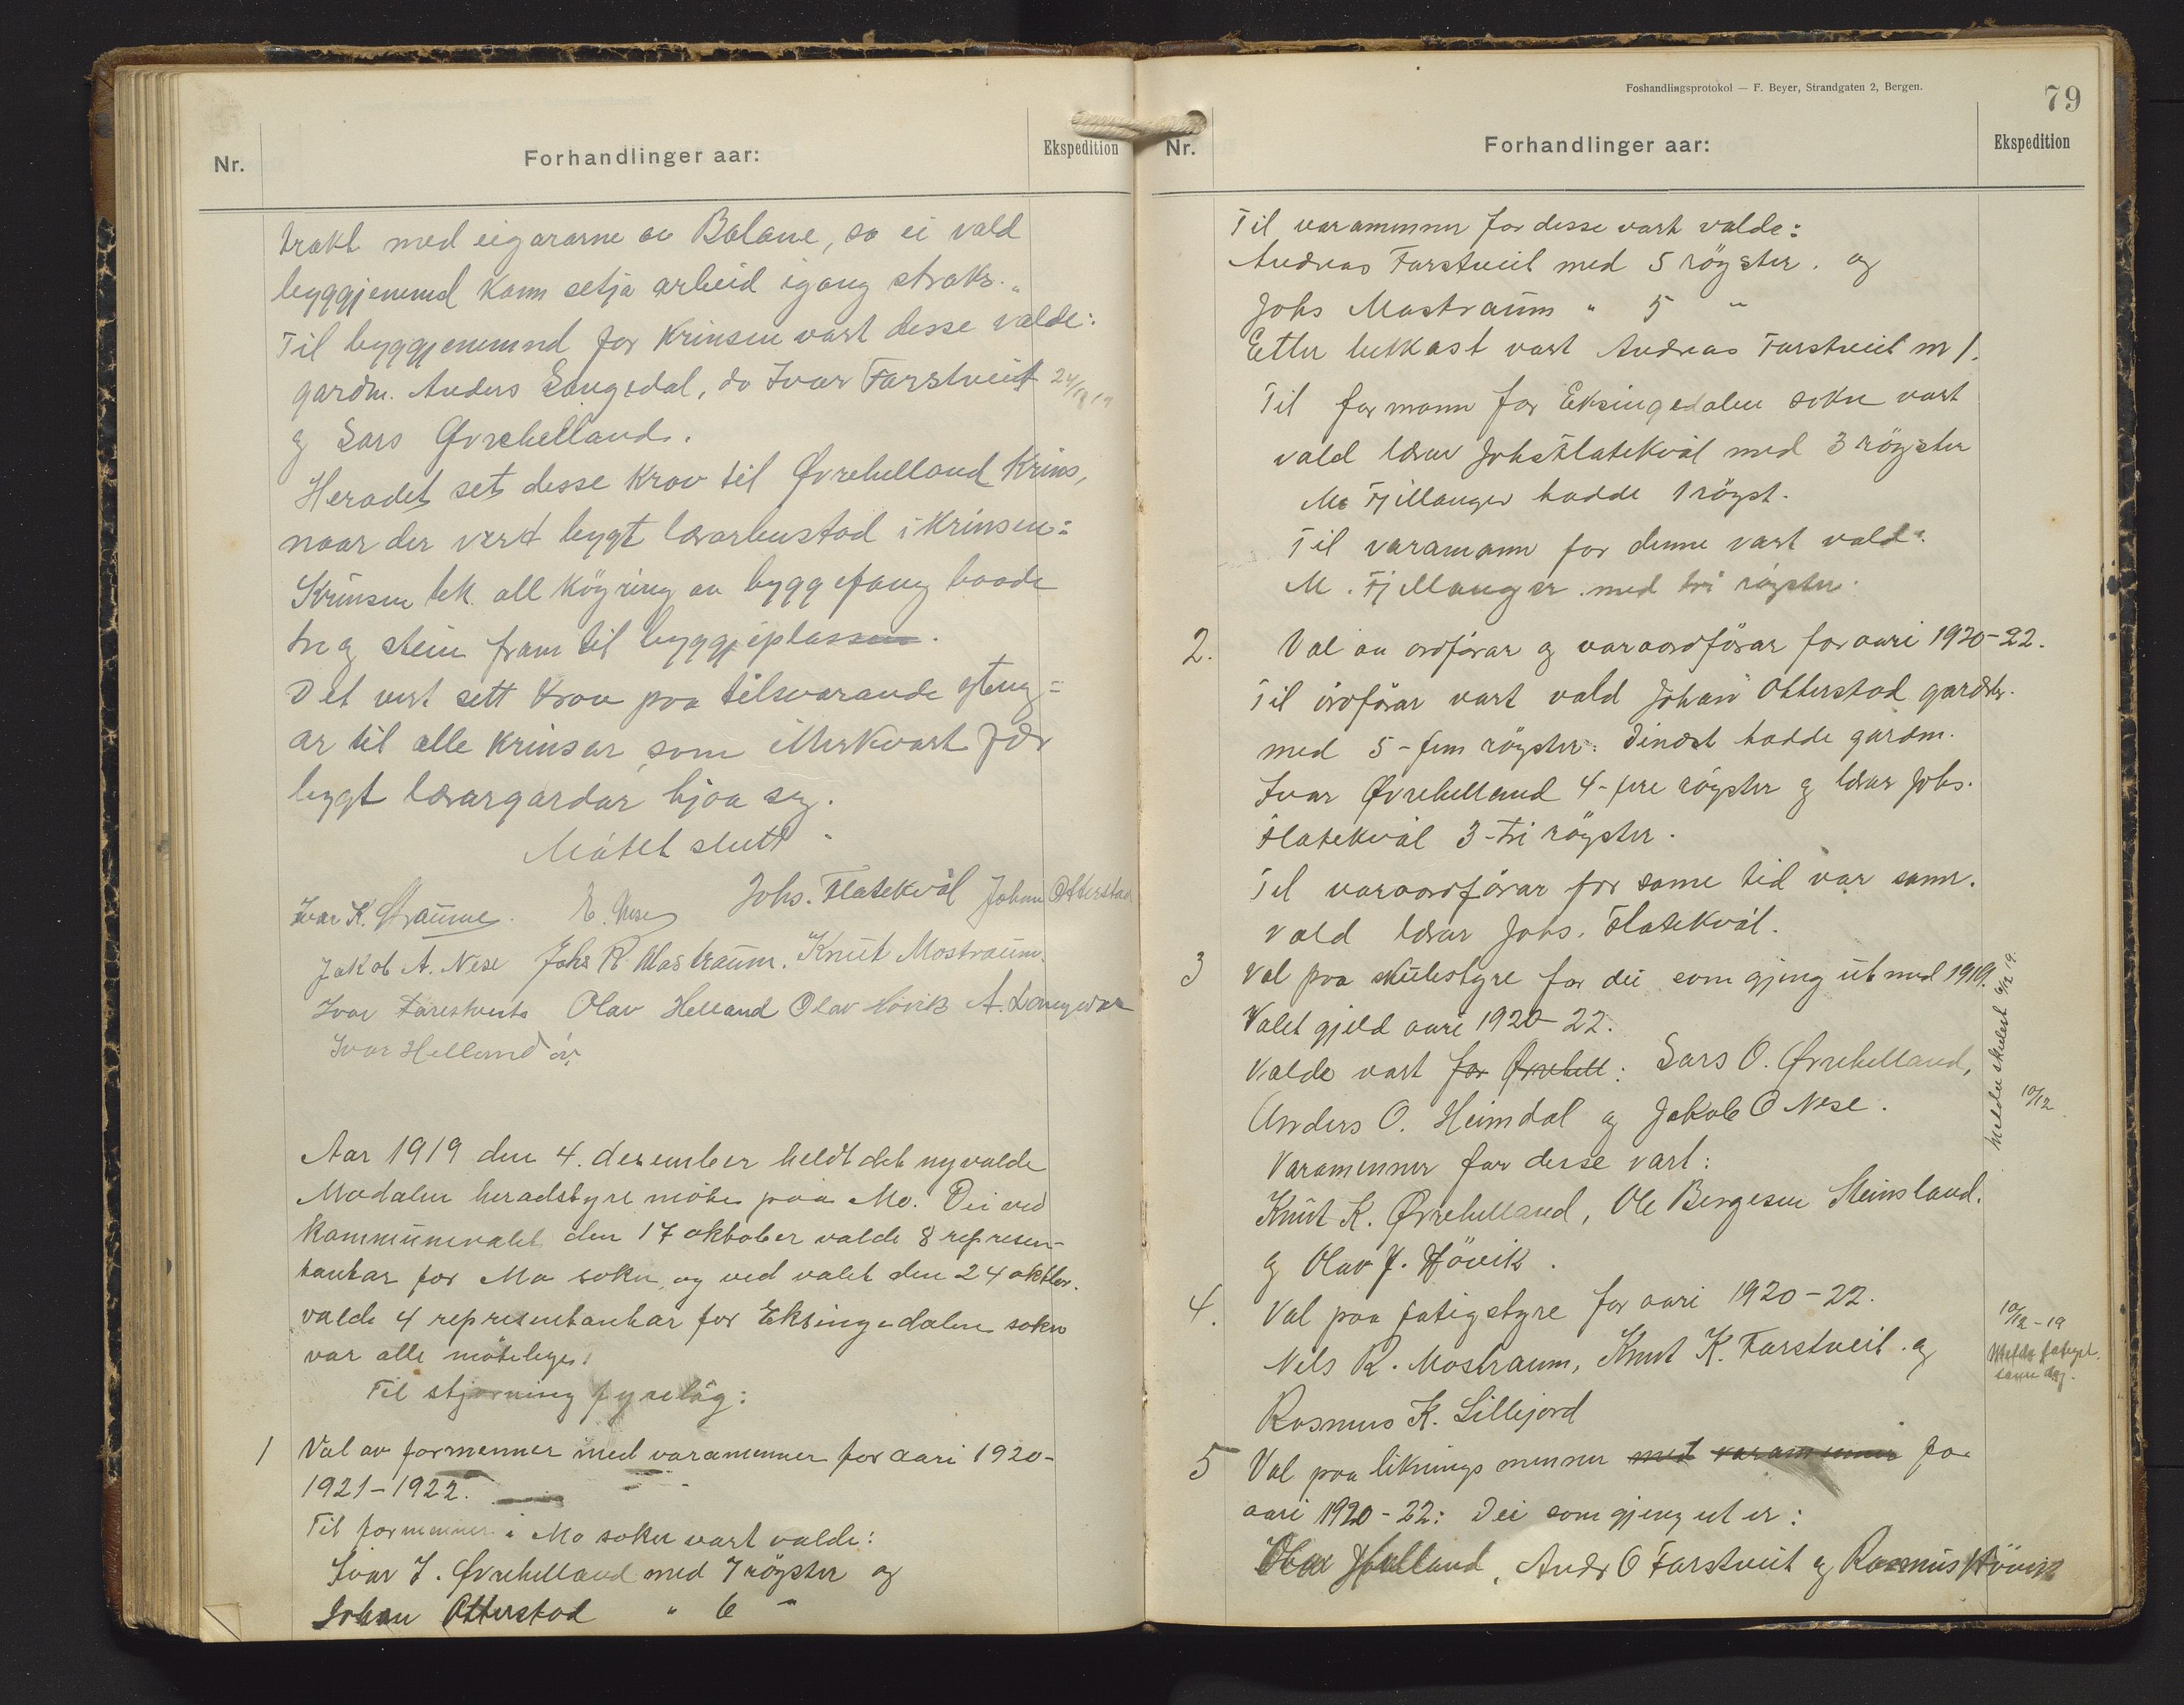 Nr.
Forhandlinger aar:
Ekspedition
trakt med eigararne av Balane, so ei vald
byggjenemnd kann setja arbeid igang straks."
Til byggjenemnd for Krinsen vart desse valde:
gardm. Anders Langedal, do Ivar Farstveit
og Lars Øvrehelland.
Heradet set desse Krav til Øvrehelland Krins,
naar der vert bygt lærarbustad i Krinsen:
Krinsen tek all köyring av byggefang baade
tre og stein fram til byggjeplassen.
Det vert sett Krav paa tilsvarande
ar til alle krinsar, som fær
bygt lærargardar hjaa seg.
Mötet slutt
Ivar K. Straume. E. Nese Johs. Flatekvål Johan Otterstad
Jakob A. Nese Johs R. Mostraum. Knut Mostraum.
Ivar Farestveit Olav Helland Olav Hövik A. Langedal
Ivar Helland
Aar 1919 den 4. desember heldt det nyvalde
Modalen heradstyre möte paa Mo. Dei ved
Kommunevalet den 17 oktober valde 8 represen-
tantar for Mo sokn og ved valet den 24 oktbr.
valde 4 representantar for Eksingedalen sokn
var alle mötelege.
Til stjorning fyrelåg:
1 Val av formenner med varamenner for aari 1920-
1921-1922.
Til formenner i Mo sokn vart valde:
Ivar J. Øvrehelland med 7 röyster og
Johan Otterstad " 6 "
Foshandlingsprotokol — F. Beyer, Strandgaten 2, Bergen.
79
Nr.
Forhandlinger aar:
Ekspedition
Til varamenner for desse vart valde:
Andreas Farstveit med 5 röyster. og
Johs Mostraum " 5 "
Etter lutkast vart Andreas Farstveit nr 1.
Til formann for Eksingedalen sokn vart
vald lærar Johs Flatekvål med 3 röyster
M. Fjellanger hadde 1 röyst.
Til varamann for denne vart vald:
M. Fjellanger med tri röyster.
2. Val av ordförar og varaordförar for aari 1920-22.
Til ordförar vart vald Johan Otterstad gardbr.
med 5-fem röyster. Dinæst hadde gardm.
Ivar Øvrehelland 4-fire röyster og lærar Johs.
Flatekvål 3-tri röyster.
Til varaordförar for same tid var samr.
vald lærar Johs. Flatekvål.
3 Val paa skulestyre for dei som gjeng ut med 1919.
Valet gjeld aari 1920-22.
Valde vart for Øvrehell: Lars O. Øvrehelland,
Anders O. Heimdal og Jakob O Nese.
Varamenner for desse vart:
Knut K. Øvrehelland, Ole Bergesen Steinsland.
og Olav J. Hövik.
Meldu skulest 6/12 19.
10/12
4. Val paa fatigstyre for aari 1920-22.
Nils R. Mostraum, Knut K. Farstveit og
Rasmus K. Lillejord
10/12-19
same dag.
5 Val paa liknings menner med varamenner for
aari 1920-22: Dei som gjeng ut er:
Olav Helland, Andr O Farstveit og Rasmus Hövik